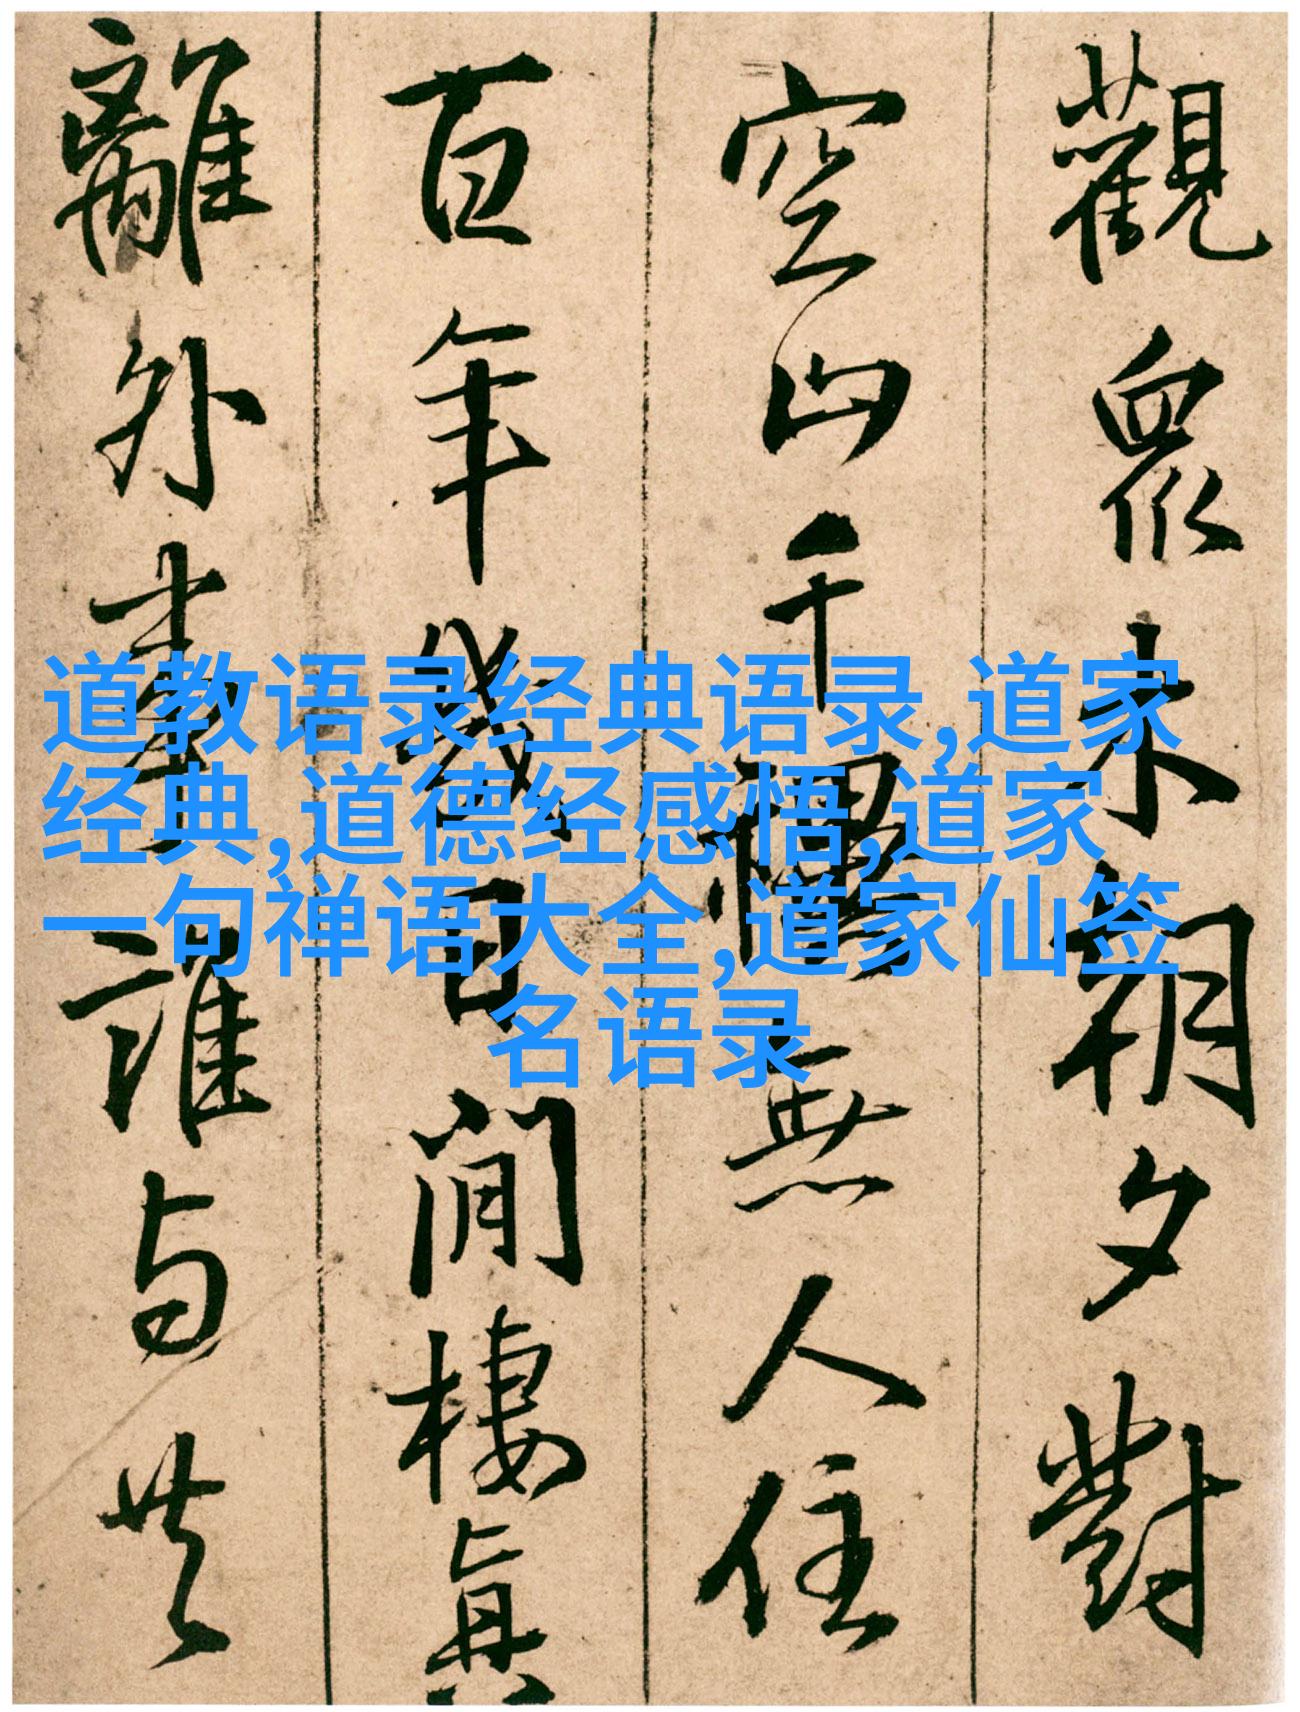 道教语录经典语录,道家
经典,道德经感悟,道家
一句禅语大全,道家仙签
名语录
觀眾朝夕對
空山千禩無人住
百年幾日閒棲真
離外誰与共